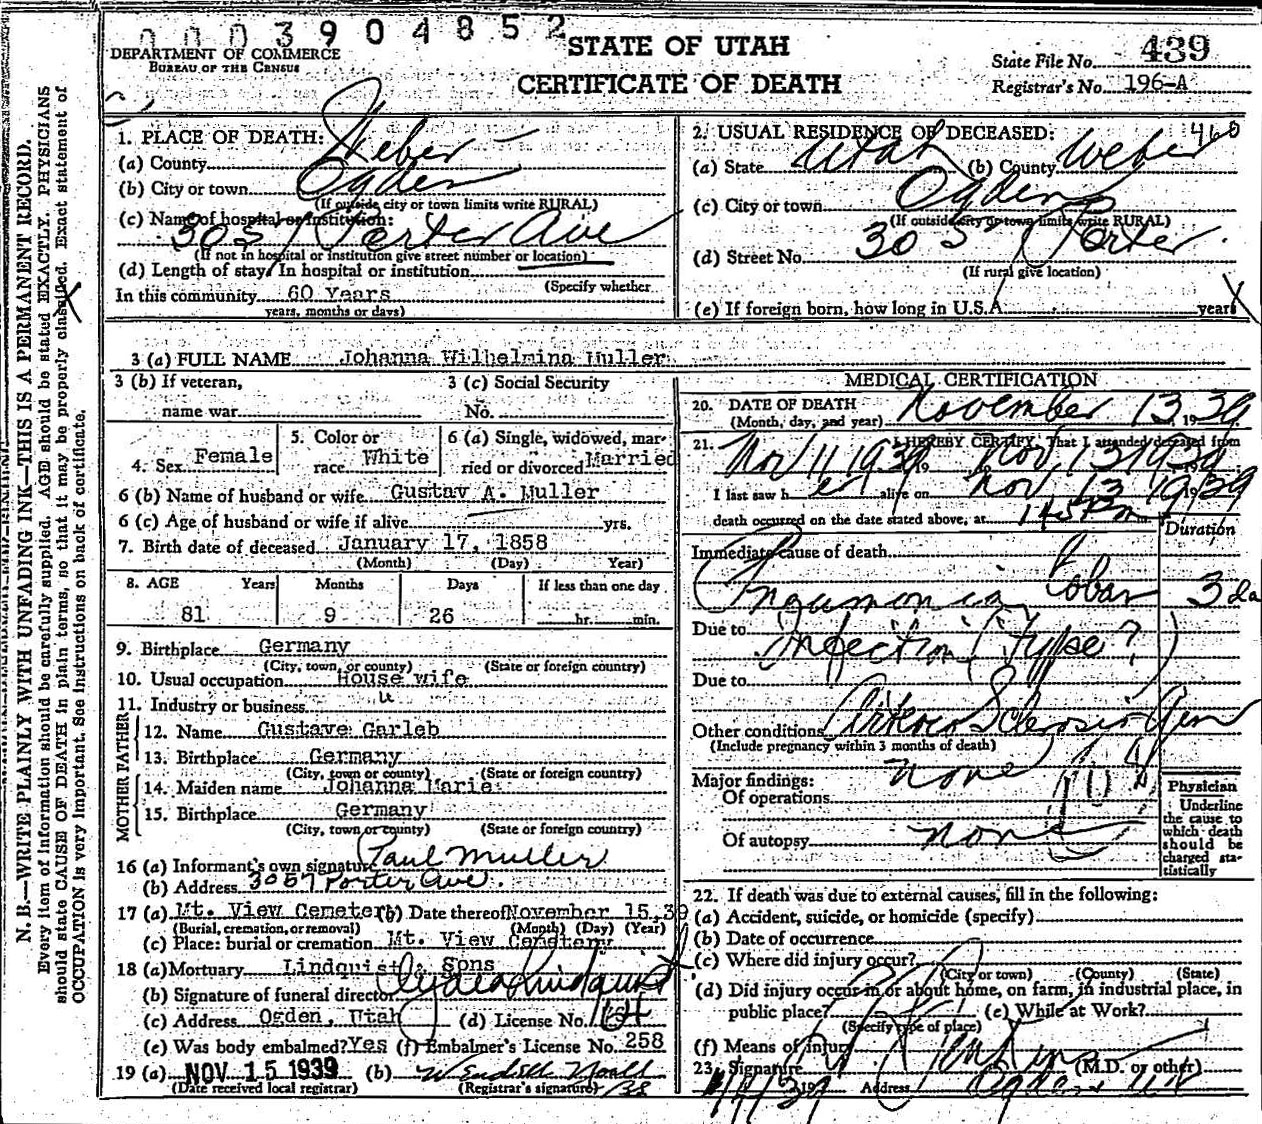 0003904852
DEPARTMENT OF COMMERCE
BUREAU OF THE CENSUS
STATE OF UTAH
CERTIFICATE OF DEATH
State File No. 439
Registrar's No. 196-A
N. B.—WRITE PLAINLY WITH UNFADING INK—THIS IS A PERMANENT RECORD.
Every item of information should be carefully supplied. AGE should be stated EXACTLY. PHYSICIANS
should state CAUSE OF DEATH in plain terms, so that it may be properly classified. Exact statement of
OCCUPATION is very important. See instructions on back of certificate.
1. PLACE OF DEATH:
(a) County Weber
(b) City or town Ogden
(If outside city or town limits write RURAL)
(c) Name of hospital or institution:
3057 Porter Ave
(If not in hospital or institution give street number or location)
(d) Length of stay: In hospital or institution
(Specify whether
In this community 60 Years
years, months or days)
2. USUAL RESIDENCE OF DECEASED: 460
(a) State Utah (b) County Weber
(c) City or town Ogden
(If outside city or town limits write RURAL)
(d) Street No. 3057 Porter
(If rural give location)
(e) If foreign born, how long in U.S.A. years
3 (a) FULL NAME Johanna Wilhelmina Muller
3 (b) If veteran,
name war
3 (c) Social Security
No.
4. Sex Female
5. Color or
race White
6 (a) Single, widowed, mar-
ried or divorced Married
6 (b) Name of husband or wife Gustav A. Muller
6 (c) Age of husband or wife if alive yrs.
7. Birth date of deceased January 17, 1858
(Month) (Day) Year)
8. AGE Years Months Days If less than one day
81 9 26 hr. min.
9. Birthplace Germany
(City, town, or county) (State or foreign country)
10. Usual occupation House wife
11. Industry or business "
FATHER
12. Name Gustave Garleb
13. Birthplace Germany
(City, town or county) (State or foreign country)
MOTHER
14. Maiden name Johanna Marie
15. Birthplace Germany
(City, town or county) (State or foreign country)
16 (a) Informant's own signature Paul Muller
(b) Address 3057 Porter Ave.
17 (a) Mt. View Cemetery (b) Date thereof November 15, 39
(Burial, cremation, or removal) (Month) (Day) (Year)
(c) Place: burial or cremation Mt. View Cemetery
18 (a) Mortuary Lindquist & Sons
(b) Signature of funeral director Clyde Lindquist
(c) Address Ogden, Utah (d) License No. 164
(e) Was body embalmed? Yes (f) Embalmer's License No. 258
19 (a) NOV 15 1939 (b)
(Date received local registrar) (Registrar's signature)
MEDICAL CERTIFICATION
20. DATE OF DEATH November 13, 1939
(Month, day, and year)
21. I HEREBY CERTIFY, That I attended deceased from
Nov 11 1939 to Nov, 13 1939
I last saw her alive on Nov 13 1939
death occurred on the date stated above, at 145 P m.
Duration
Immediate cause of death
Pneumonia Lobar 3 da
Due to Infection (type?)
Due to
Other conditions Arterio Sclerosis Gen
(Include pregnancy within 3 months of death)
Major findings: none
Of operations
Of autopsy none
Physician
Underline
the cause to
which death
should be
charged sta-
tistically
22. If death was due to external causes, fill in the following:
(a) Accident, suicide, or homicide (specify)
(b) Date of occurrence
(c) Where did injury occur?
(City or town) (County) (State)
(d) Did injury occur in or about home, on farm, in industrial place, in
public place? (e) While at Work?
(Specify type of place)
(f) Means of injury
23. Signature Jenkins (M.D. or other)
11/14/39 19 Address Ogden Ut